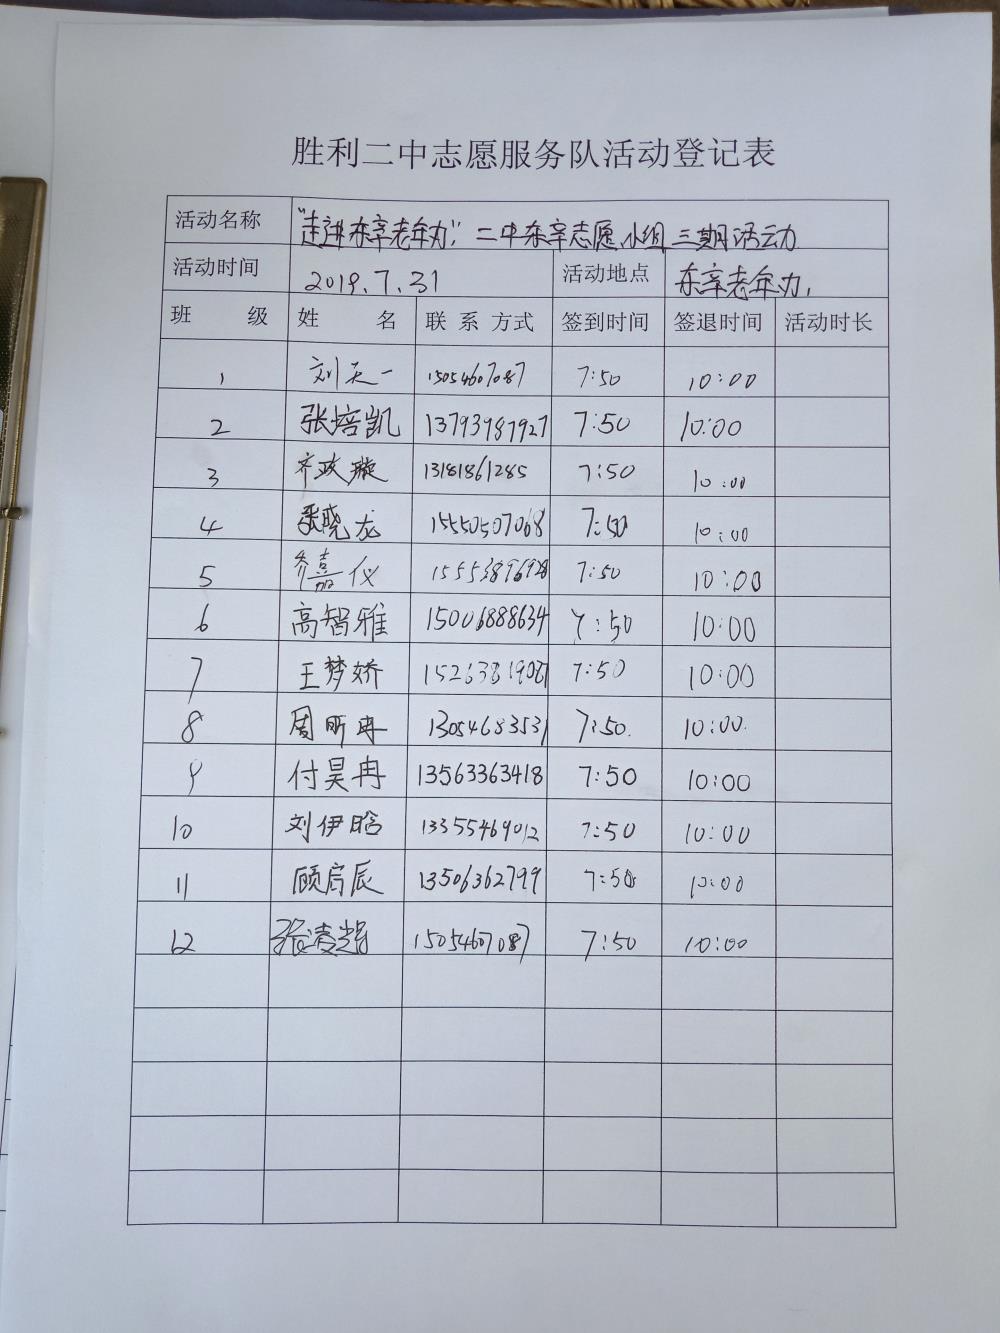 胜利二中志愿服务队活动登记表
活动名称 "走进东辛老年办"二中东辛志愿小组三期活动
活动时间 2019.7.31 活动地点 东辛老年办
班 级 姓 名 联 系 方式 签到时间 签退时间 活动时长
1 刘天一 15054607087 7:50 10:00
2 张培凯 13793987927 7:50 10:00
3 齐政璇 13181861285 7:50 10:00
4 张晓龙 15550507068 7:50 10:00
5 乔嘉仪 15553896928 7:50 10:00
6 高智雅 15006888634 7:50 10:00
7 王梦娇 15263819087 7:50 10:00
8 周昕冉 13054683531 7:50 10:00
9 付昊冉 13563363418 7:50 10:00
10 刘伊晗 13355469012 7:50 10:00
11 顾启辰 13506362799 7:50 10:00
12 张凌 15054607087 7:50 10:00